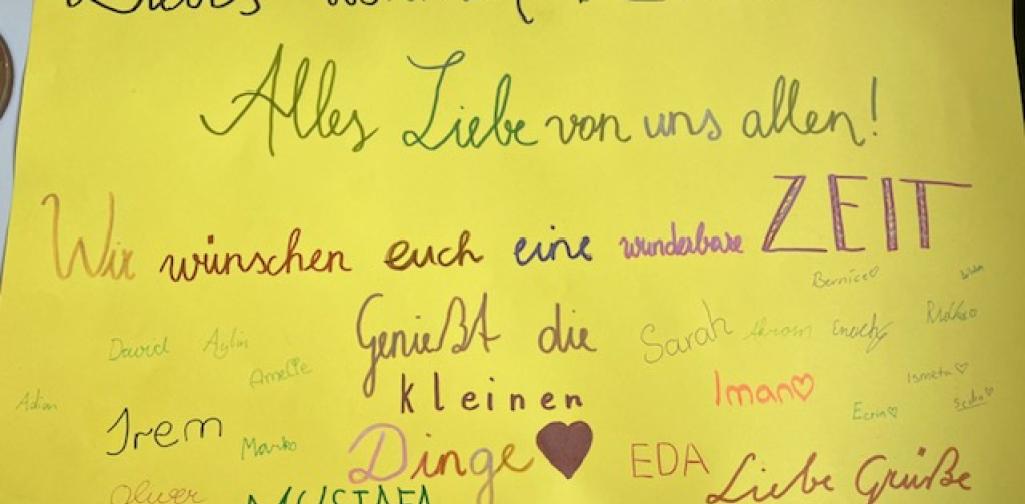 Liebes
Alles Liebe von uns allen!
Wir wünschen euch eine wunderbare ZEIT
Bernice♡
Genießt die
Sarah Akram Enock
David Aylin
Amelie
kleinen
Iman♡
Ismeta♡
Adian
Ecrin♡
Irem
Marko
Dinge♥
EDA
Liebe Grüße
Oliver
MUSTAFA